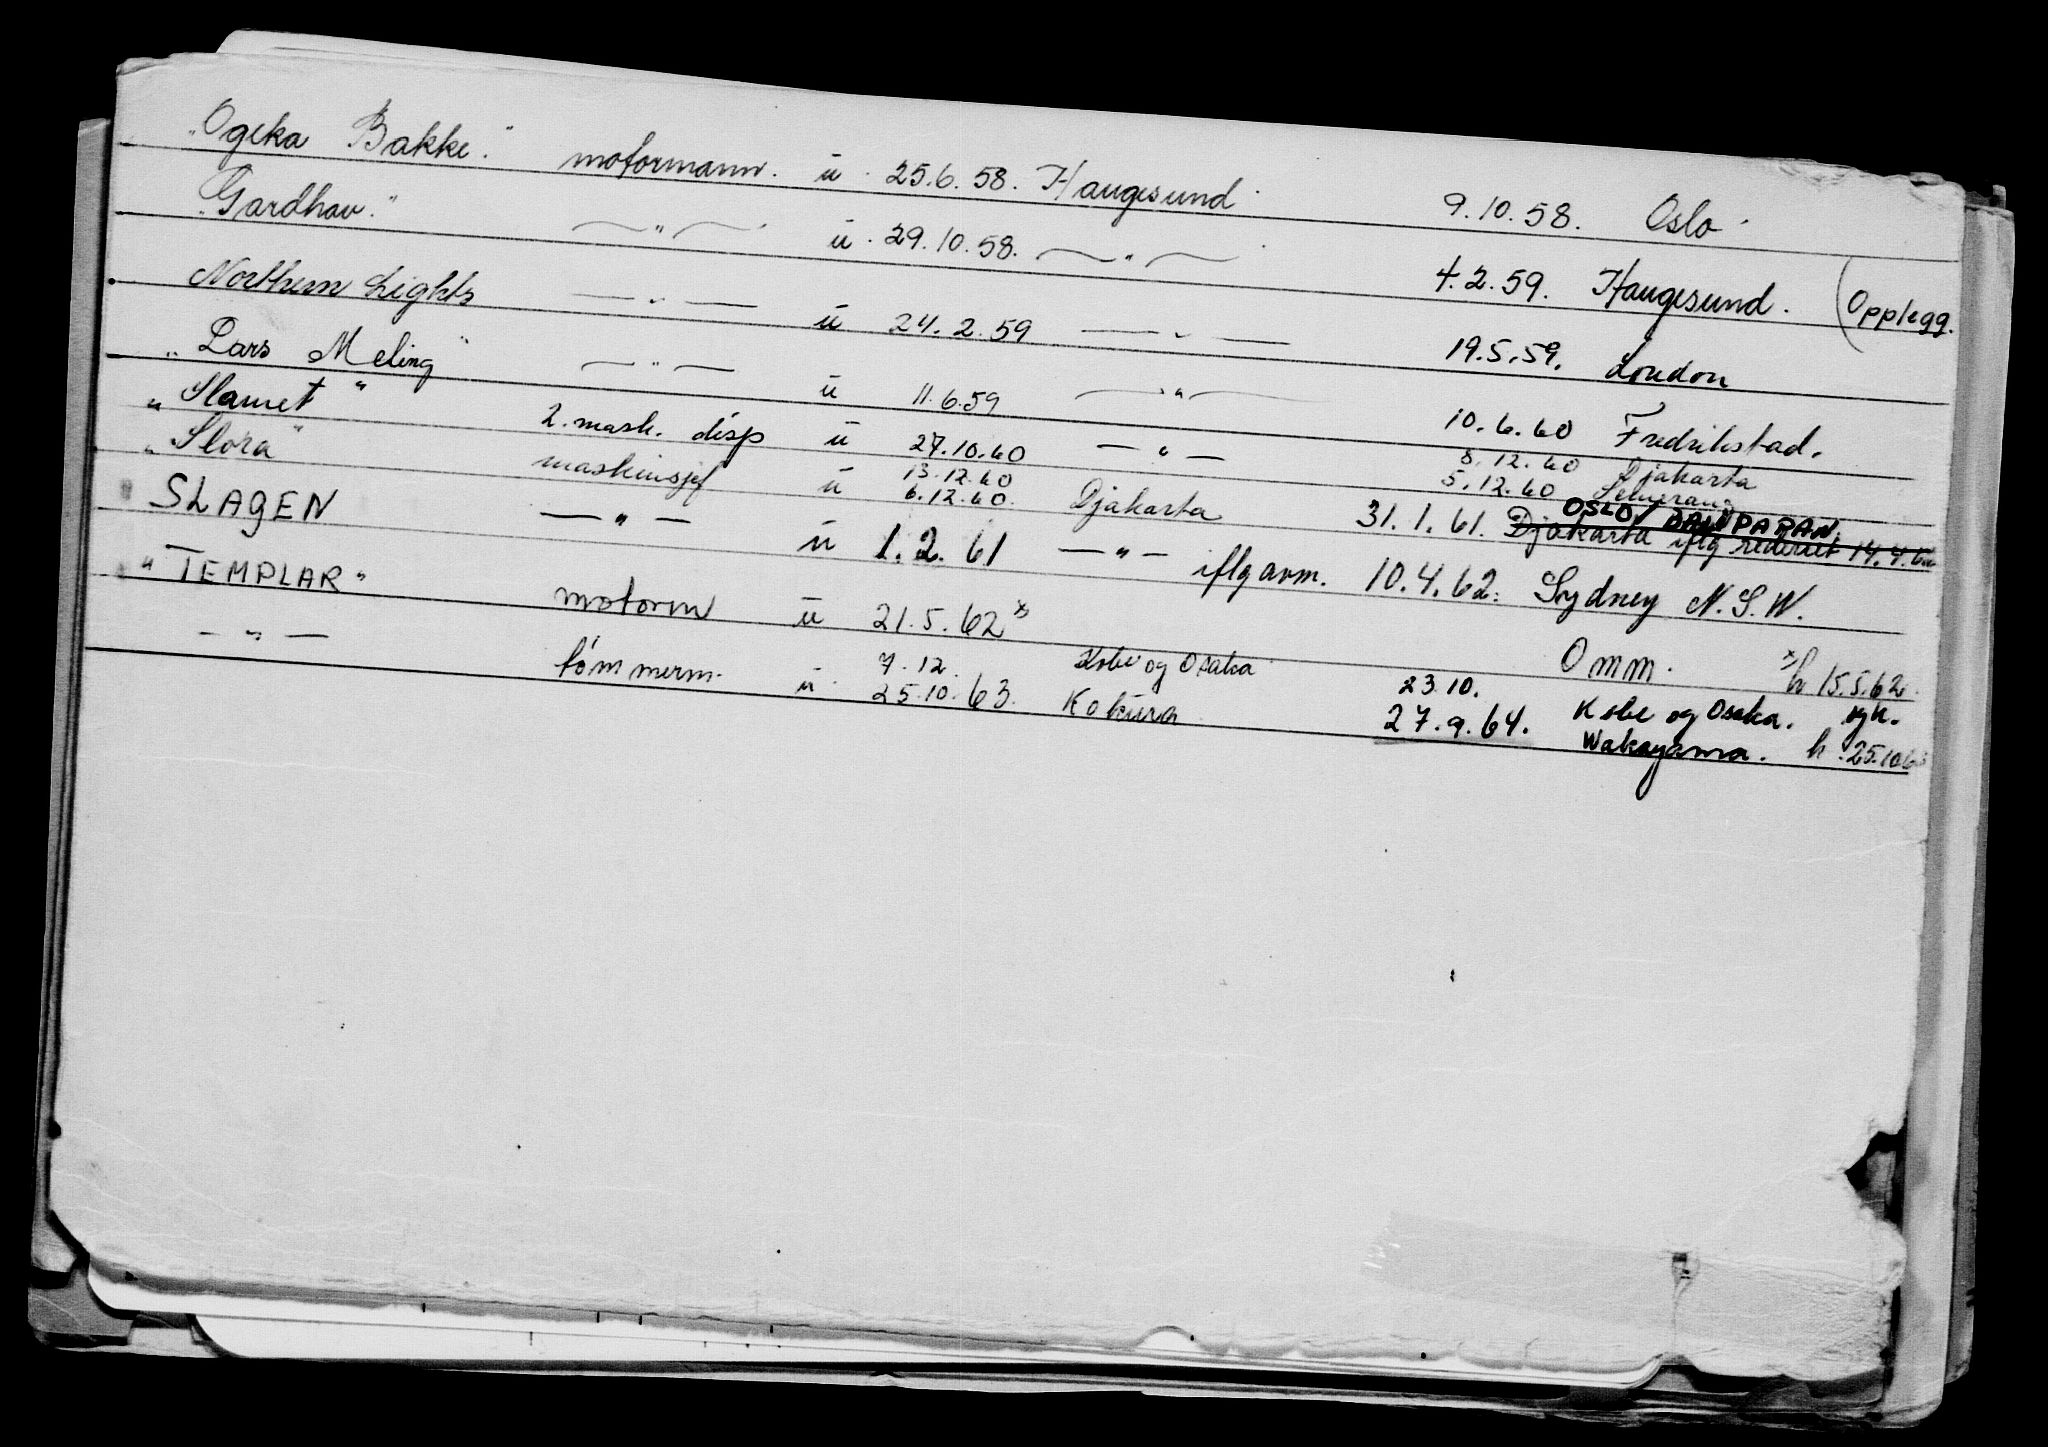 "Ogeka Bakke." motormann. u. 25.6.58. Haugesund 9.10.58. Oslo
"Gardhav." — " — u. 29.10.58. — " — 4.2.59. Haugesund. (Opplegg.
Northern Lights — " — u 24.2.59 — " — 19.5.59. London
"Lars Meling" — " — u 11.6.59 — " — 10.6.60 Fredrikstad.
"Slamet" 2. mask. disp u 27.10.60 — " — 8.12.60 Djakarta
13.12.60 5.12.60 Semerang
"Slora" maskinsjef u 6.12.60. Djakarta 31.1.61. Djakarta iflg rederiet 14.4.
OSLO/
SLAGEN — " — u 1.2.61 — " — iflg avm. 10.4.62. Sydney N.S.W.
"TEMPLAR" motorm u 21.5.62 x Omm. x h 15.5.62.
7.12. Kobe og Osaka 23.10. Kobe og Osaka. syk.
— " — tømmerm. u. 25.10.63. Kokura 27.9.64. Wakayama. h. 25.10.63